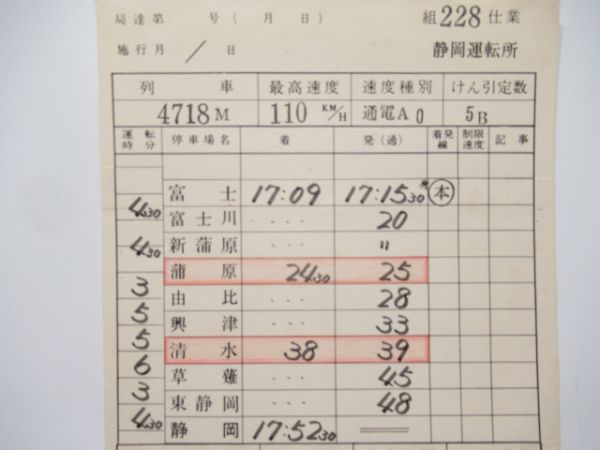 局達第 号 ( 月 日 ) 組 228 仕業
施行月 / 日 静岡運転所
列 車 最高速度 速度種別 けん引定数
4718M 110 KM/H 通電A0 5B
運転時分 停車場名 着 発(通) 着発線 制限速度 記事
富士 17:09 17:15 30 本
4 30
富士川 ... 20
4 30
新蒲原 ... 〃
蒲原 24 30 25
3
由比 ... 28
5
興津 ... 33
5
清水 38 39
6
草薙 ... 45
3
東静岡 ... 48
4 30
静岡 17:52 30